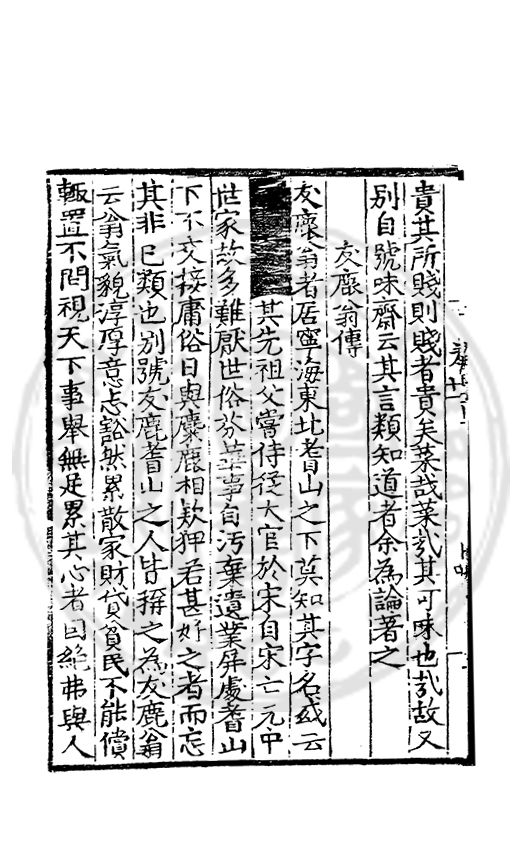 貴其所賤則賤者貴矣菜哉菜哉其可味也哉故又
別自號味齋云其言類知道者余為論著之
友鹿翁傳
友鹿翁者居寧海東北耆山之下莫知其字名或云
其先祖父嘗侍從大官於宋自宋亡元中
世家故多難厭世俗芬華事自汚棄遺業屏處耆山
下不交接庸俗日與麋鹿相欵狎若甚好之者而忘
其非已類也別號友鹿耆山之人皆稱之為友鹿翁
云翁氣貌淳厚意态豁然累散家財貸貧民不能償
輙置不問視天下事舉無足累其心者因絶弗與人